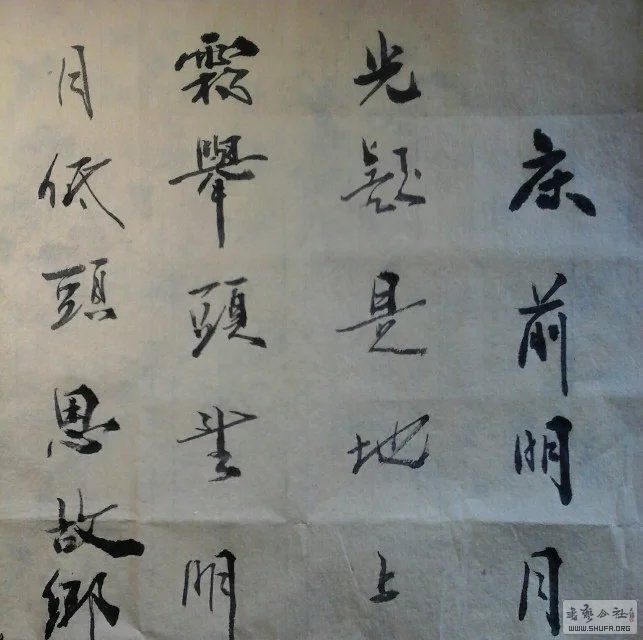 床前明月
光疑是地上
霜舉頭望明
月低頭思故鄉
書藝公社
WWW.SHUFA.ORG